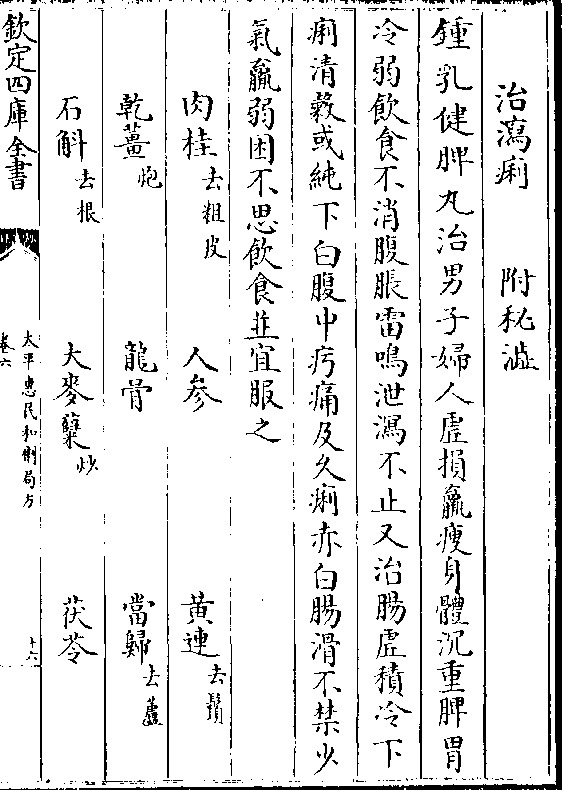 治瀉痢 附秘澁
鍾乳健脾丸治男子婦人虛損羸瘦身體沉重脾胃
冷弱飲食不消腹脹雷鳴泄瀉不止又治腸虛積冷下
痢清穀或純下白腹中疞痛及久痢赤白腸滑不禁少
氣羸弱困不思飲食並宜服之
肉桂去粗皮 人參 黃連去鬚
乾薑炮 龍骨 當歸去蘆
石斛去根 大麥蘖炒 茯苓
欽定四庫全書 太平惠民和劑局方 卷六 十六